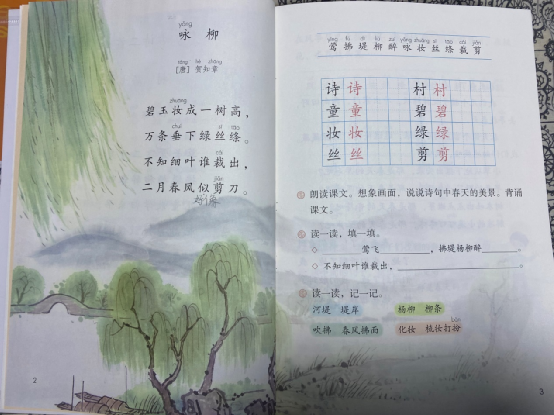 yǒng
咏 柳
táng hè zhāng
[唐] 贺知章
zhuāng
碧玉妆成一树高，
chuí sī tāo
万条垂下绿丝绦。
cái
不知细叶谁裁出，
jiǎn
二月春风似剪刀。
2
yīng fú dī liǔ zuì yǒng zhuāng sī tāo cái jiǎn
莺 拂 堤 柳 醉 咏 妆 丝 绦 裁 剪
诗 诗 村 村
童 童 碧 碧
妆 妆 绿 绿
丝 丝 剪 剪
朗读课文。想象画面，说说诗句中春天的美景。背诵
课文。
读一读，填一填。
◇ 莺飞 ，拂堤杨柳醉 。
◇ 不知细叶谁裁出， 。
读一读，记一记。
河堤 堤岸 杨柳 柳条
bàn
吹拂 春风拂面 化妆 梳妆打扮
3